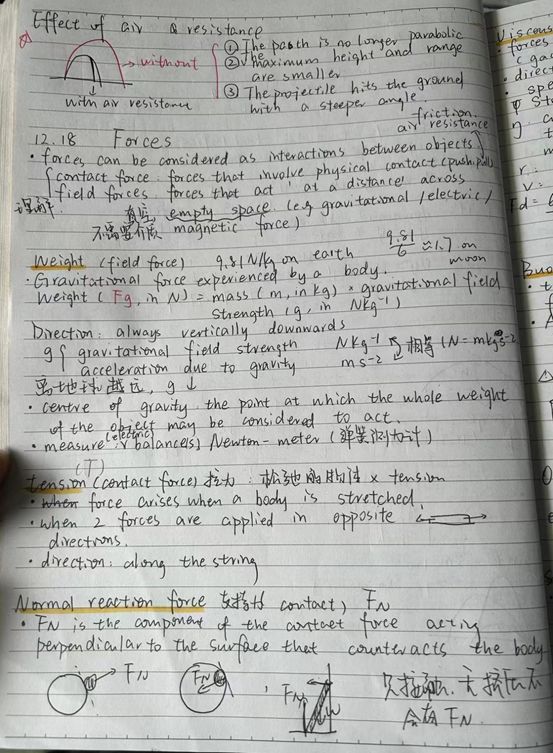 Effect of air & resistance
without
with air resistance
① The path is no longer parabolic
② The maximum height and range
are smaller
③ The projectile hits the ground
with a steeper angle
friction.
air resistance
12.18 Forces
• forces can be considered as interactions between objects
contact force: forces that involve physical contact (push, pull)
field forces: forces that act 'at a distance' across
empty space (e.g gravitational / electric /
不需要介质 magnetic force)
Weight (field force) 9.81 N/kg on earth 9.81/6 ≈ 1.7 on
moon
• Gravitational force experienced by a body.
Weight (Fg, in N) = mass (m, in kg) × gravitational field
strength (g, in NKg⁻¹)
Direction: always vertically downwards
g { gravitational field strength NKg⁻¹
acceleration due to gravity ms⁻² 相等 1N = mkgs⁻²
离地球越远, g↓
• centre of gravity: the point at which the whole weight
of the object may be considered to act.
• measure: (electric) balance(s) Newton-meter (弹簧测力计)
(T)
tension (contact force) 拉力: 松弛的物体 × tension
• when force arises when a body is stretched.
• when 2 forces are applied in opposite
directions.
• direction: along the string
Normal reaction force 支持力 (contact) FN
• FN is the component of the contact force acting
perpendicular to the surface that counteracts the body
FN
FN
FN
只接触、无挤压不
会有 FN.
Viscous
• forces
• direct
r:
v:
Fd = 6